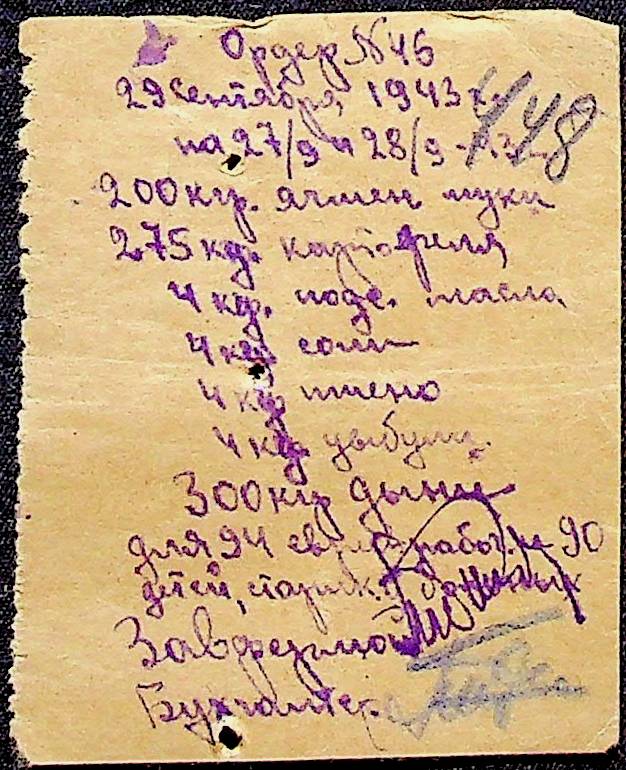 Ордер №46
29 сентября 1943 г. 448
на 27/9 и 28/9 - 43
200 кгр. ячмен муки
275 кгр. картофеля
4 кгр. подс. масла
4 кгр соли
4 кгр пшено
4 кгр цыбули
300 кгр дыни
для 94 евр. работ. и 90
детей, старик. и больных
Завфермой
Бухгалтер